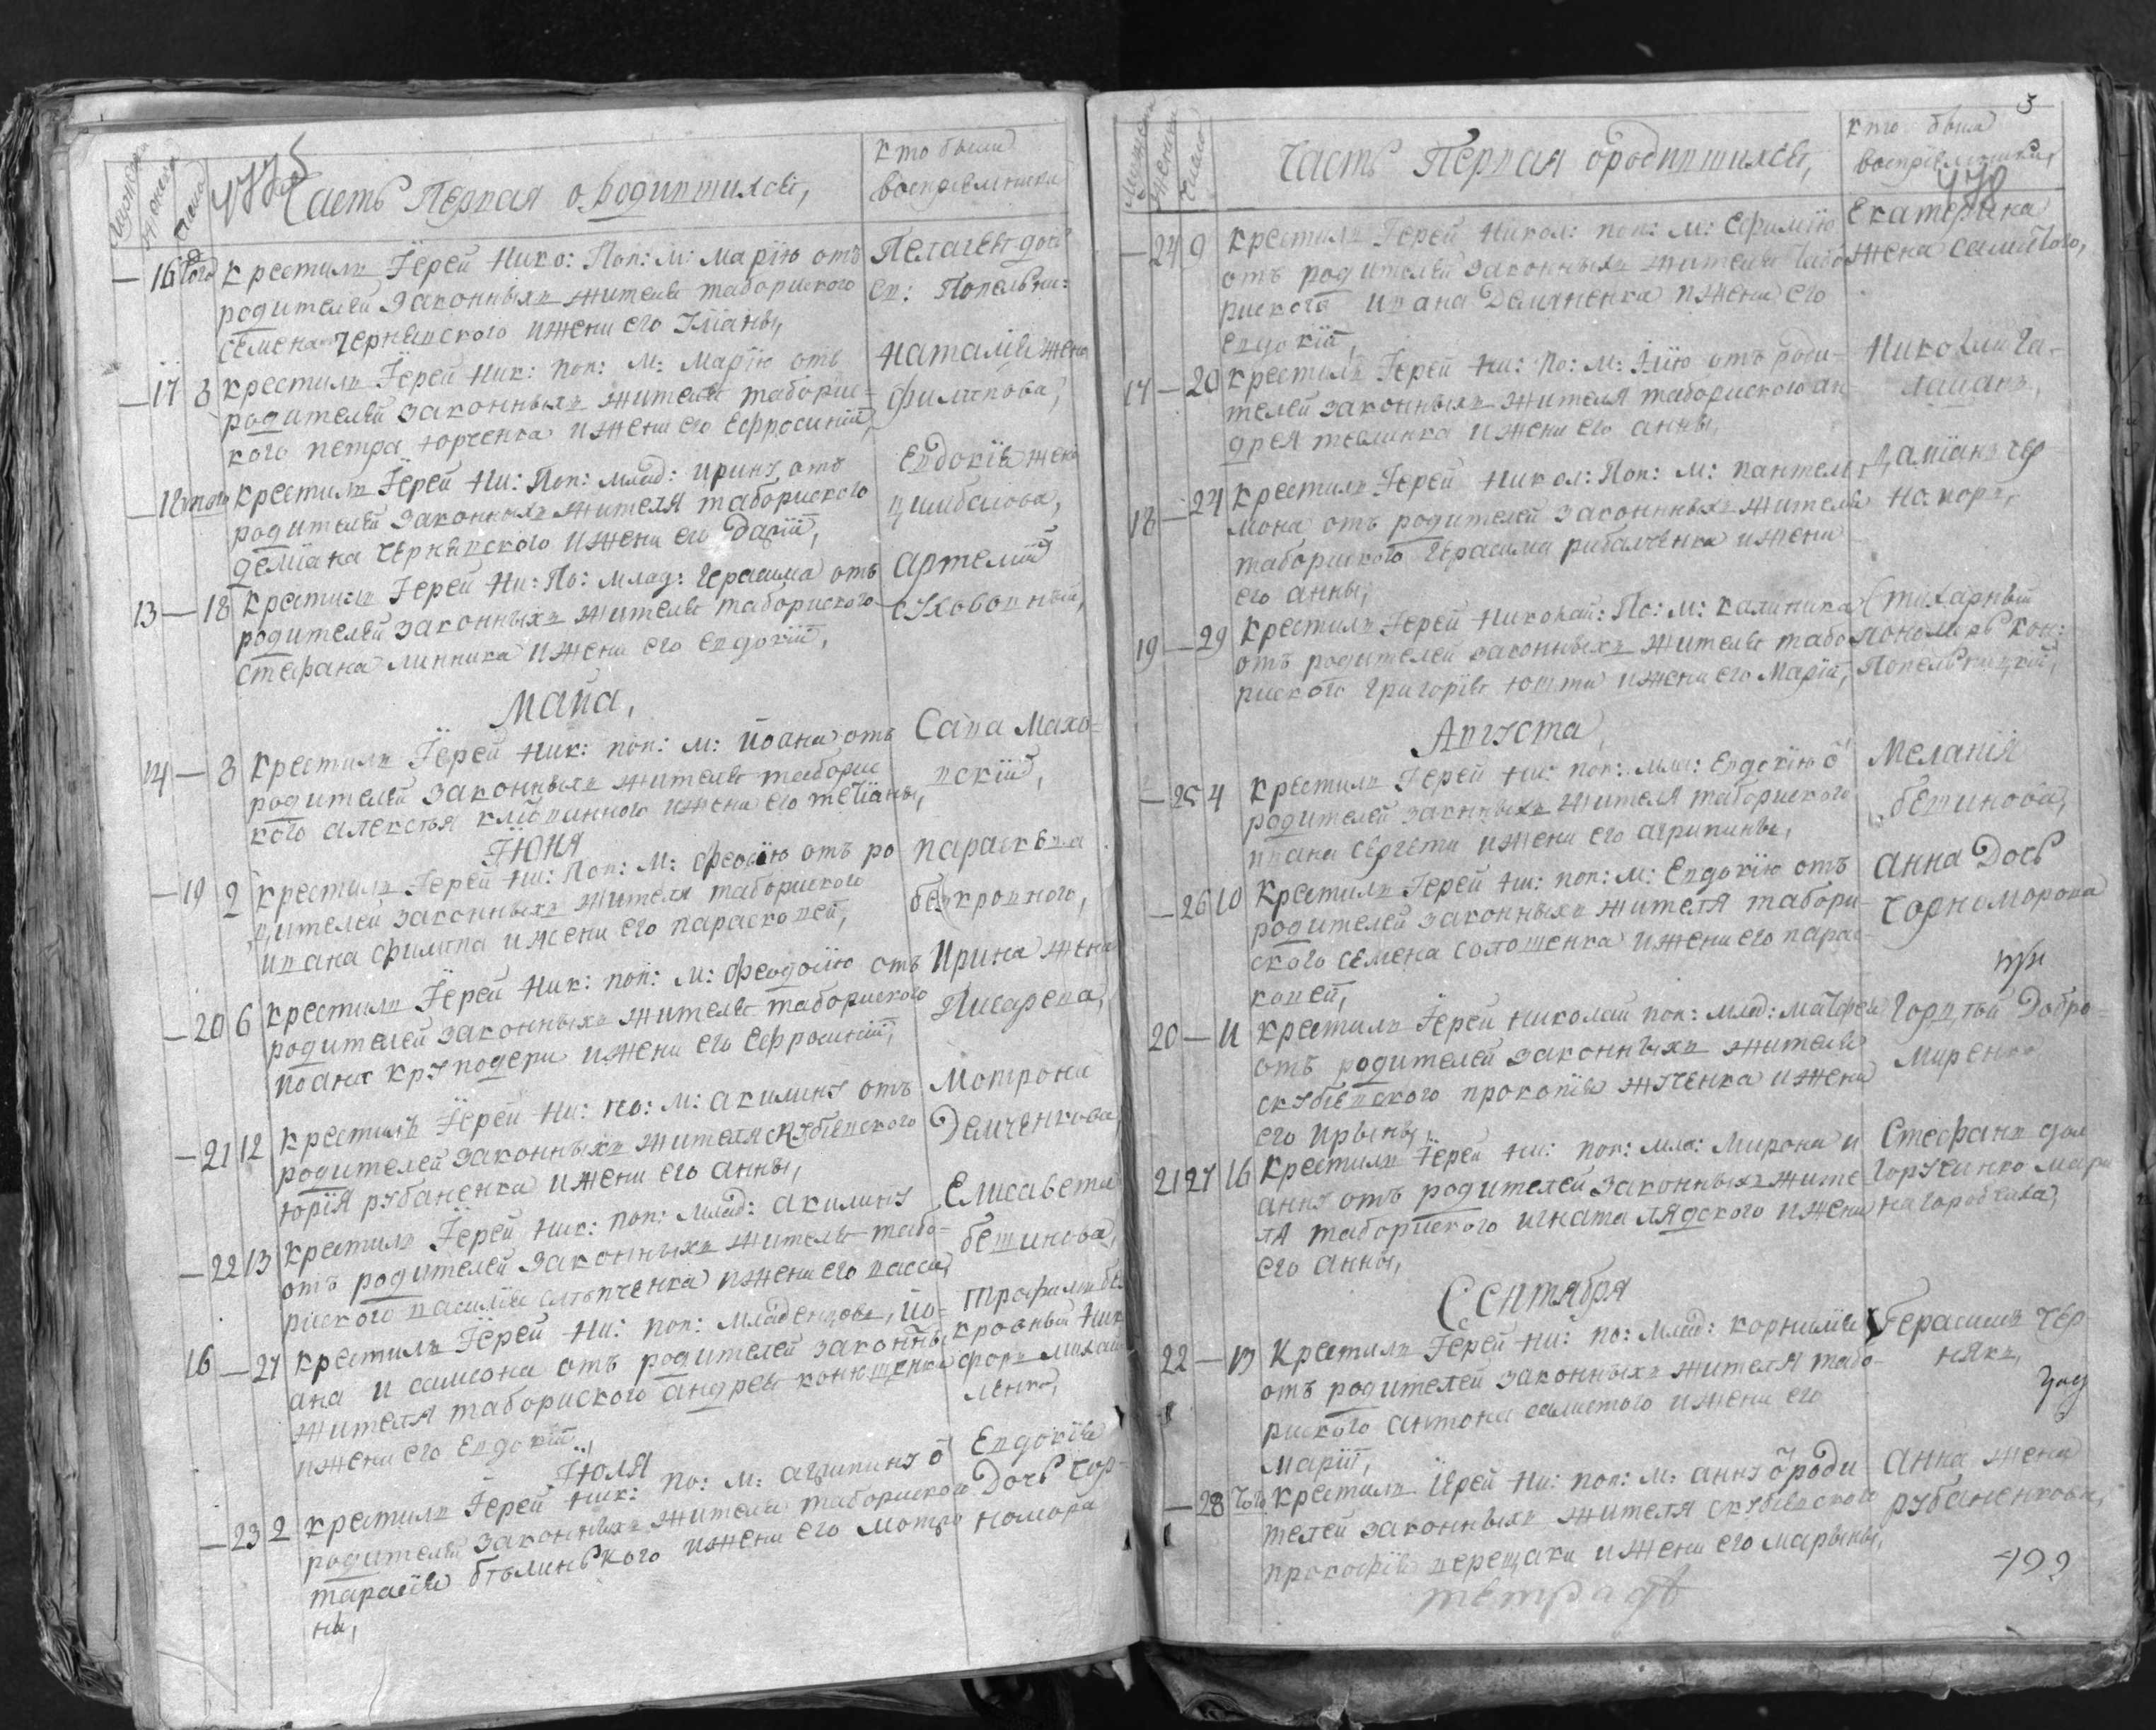 Мужеска
Женска
Числа
Часть Первая о родившихся,
кто были
воспрїемники
—16 того крестилъ Їерей Нико: Поп: м: Марїю отъ
родителей законныхъ жителя табориского
семена чернявского и жени его Улїаны,
Пелагея дочь
св: Попельни:
—17 3 крестилъ Їерей Ник: поп: м: Марїю отъ
родителей законныхъ жителя таборис-
кого петра юрченка и жени его Ефросинїи,
наталїя жена
филипова,
—18 того крестилъ Їерей Ни: Поп: млад: ирину отъ
родителей законныхъ жителя табориского
демїана чернявского и жени его Дарїи,
Евдокїя жена
цимбалова,
13— 18 крестилъ Їерей Ни: По: млад: Герасима отъ
родителей законныхъ жителя табориского
стефана линника и жени его евдокїи,
Артемїй
суховонный,
Маїа,
14— 3 крестилъ Їерей Ник: поп: м: йоана отъ
родителей законныхъ жителя таборис
кого алексѣя клїованного и жени его тетїаны,
Сава Махо-
вскїй,
Їюня
—19 2 крестилъ Їерей Ни: Поп: м: феодосїю отъ ро
дителей законныхъ жителя табориского
ивана филипа и жени его параскевеи,
параскевиа
безкровного,
—20 6 крестилъ Їерей Ник: поп: м: феодосїю отъ
родителей законныхъ жителя табориского
йоана круподери и жени его Ефросинїи,
Ирина жена
Писарева,
—21 12 крестилъ Їерей Ни: по: м: акилину отъ
родителей законныхъ жителя скубїевского
юрїя рубаненка и жени его анны,
Мотрона
Демченкова
—22 13 крестилъ Їерей Ник: поп: млад: акилину
отъ родителей законныхъ жителя табо-
риского василїя слѣпченка и жени его васси,
Елисавета
бешинова,
16—27 крестилъ Їерей Ни: поп: младенцовъ, йо-
ана и самсона отъ родителей законны
жителя табориского андрея конюшенка
и жени его Евдокїи,
Трофимъ без
кровный Ник
форъ михай
ленко,
Їюля
—23 2 крестилъ Їерей Ник: по: м: агрипину ѿ
родителей законныхъ жителя табориского
тарасїя бѣлинського и жени его мотро
ны,
Евдокїя
Дочь Чор-
номора
3
Мужеска
Женска
Числа
Часть Первая о родившихся,
кто были
воспрїемники,
478
—24 9 крестилъ Їерей Никол: поп: м: Ефимїю
отъ родителей законныхъ жителя табо
риского ивана Демяненка и жени его
евдокїи,
Екатерина
жена самїтого,
17—20 крестилъ Їерей Ни: По: м: Їлїю отъ роди-
телей законныхъ жителя табориского ан
дрея тѣлинка и жени его анны,
Николай Га-
18—24 крестилъ Їерей Никол: Поп: м: пантели
мона отъ родителей законныхъ жителя
таборикого Герасима рибалченка и жени
его анны,
Дамїанъ чер
номоръ,
19—29 крестилъ Їерей Николай: По: м: калиника
отъ родителей законныхъ жителя табо
риского григорїя юшти и жени его Марїи,
Стихарный
пономарь кон:
Попельницкїй,
Августа,
—25 4 крестилъ Їерей Ни: поп: мла: Евдокїю ѿ
родителей законныхъ жителя таборикого
ивана сергети и жени его агрипины,
Меланїя
бешинова,
—26 10 крестилъ Їерей Ни: поп: м: Евдокїю отъ
родителей законныхъ жителя табори-
ского семена солошенка и жени его парас-
кевеи,
анна Дочь
Чорноморова
20—11 крестилъ Їерей Николай поп: млад: матфея
отъ родителей законныхъ жителя
скубїевского прокопїя жученка и жени
его Ирины,
Гордѣй Добро-
миренко
21 27 16 крестилъ Їерей Ни: поп: мла: Мирона и
анну отъ родителей законныхъ жите
ля табориского игната лядского и жени
его анны,
Стефанъ
Горученко мари
на городчаха,
Сентября
22—13 крестилъ Їерей Ни: по: млад: корнилїя
отъ родителей законныхъ жителя табо-
риского антона самїтого и жени его
марїи,
Герасимъ чер
някъ,
—28 того крестилъ Їерей Ни: поп: м: анну ѿ роди
телей законныхъ жителя скубїевского
прокофїя верещаки и жени его марины,
анна жена
рубаненкова,
499
тетрадь